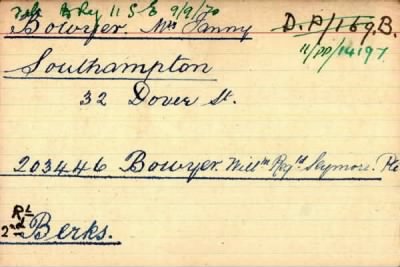 11 S E 9/9/70
Bowyer. Mrs Fanny D.P/169.B.
11/PP/14197
Southampton
32 Dover St.
203446 Bowyer. Willm Regd Seymore. Pte
2nd Rl Berks.